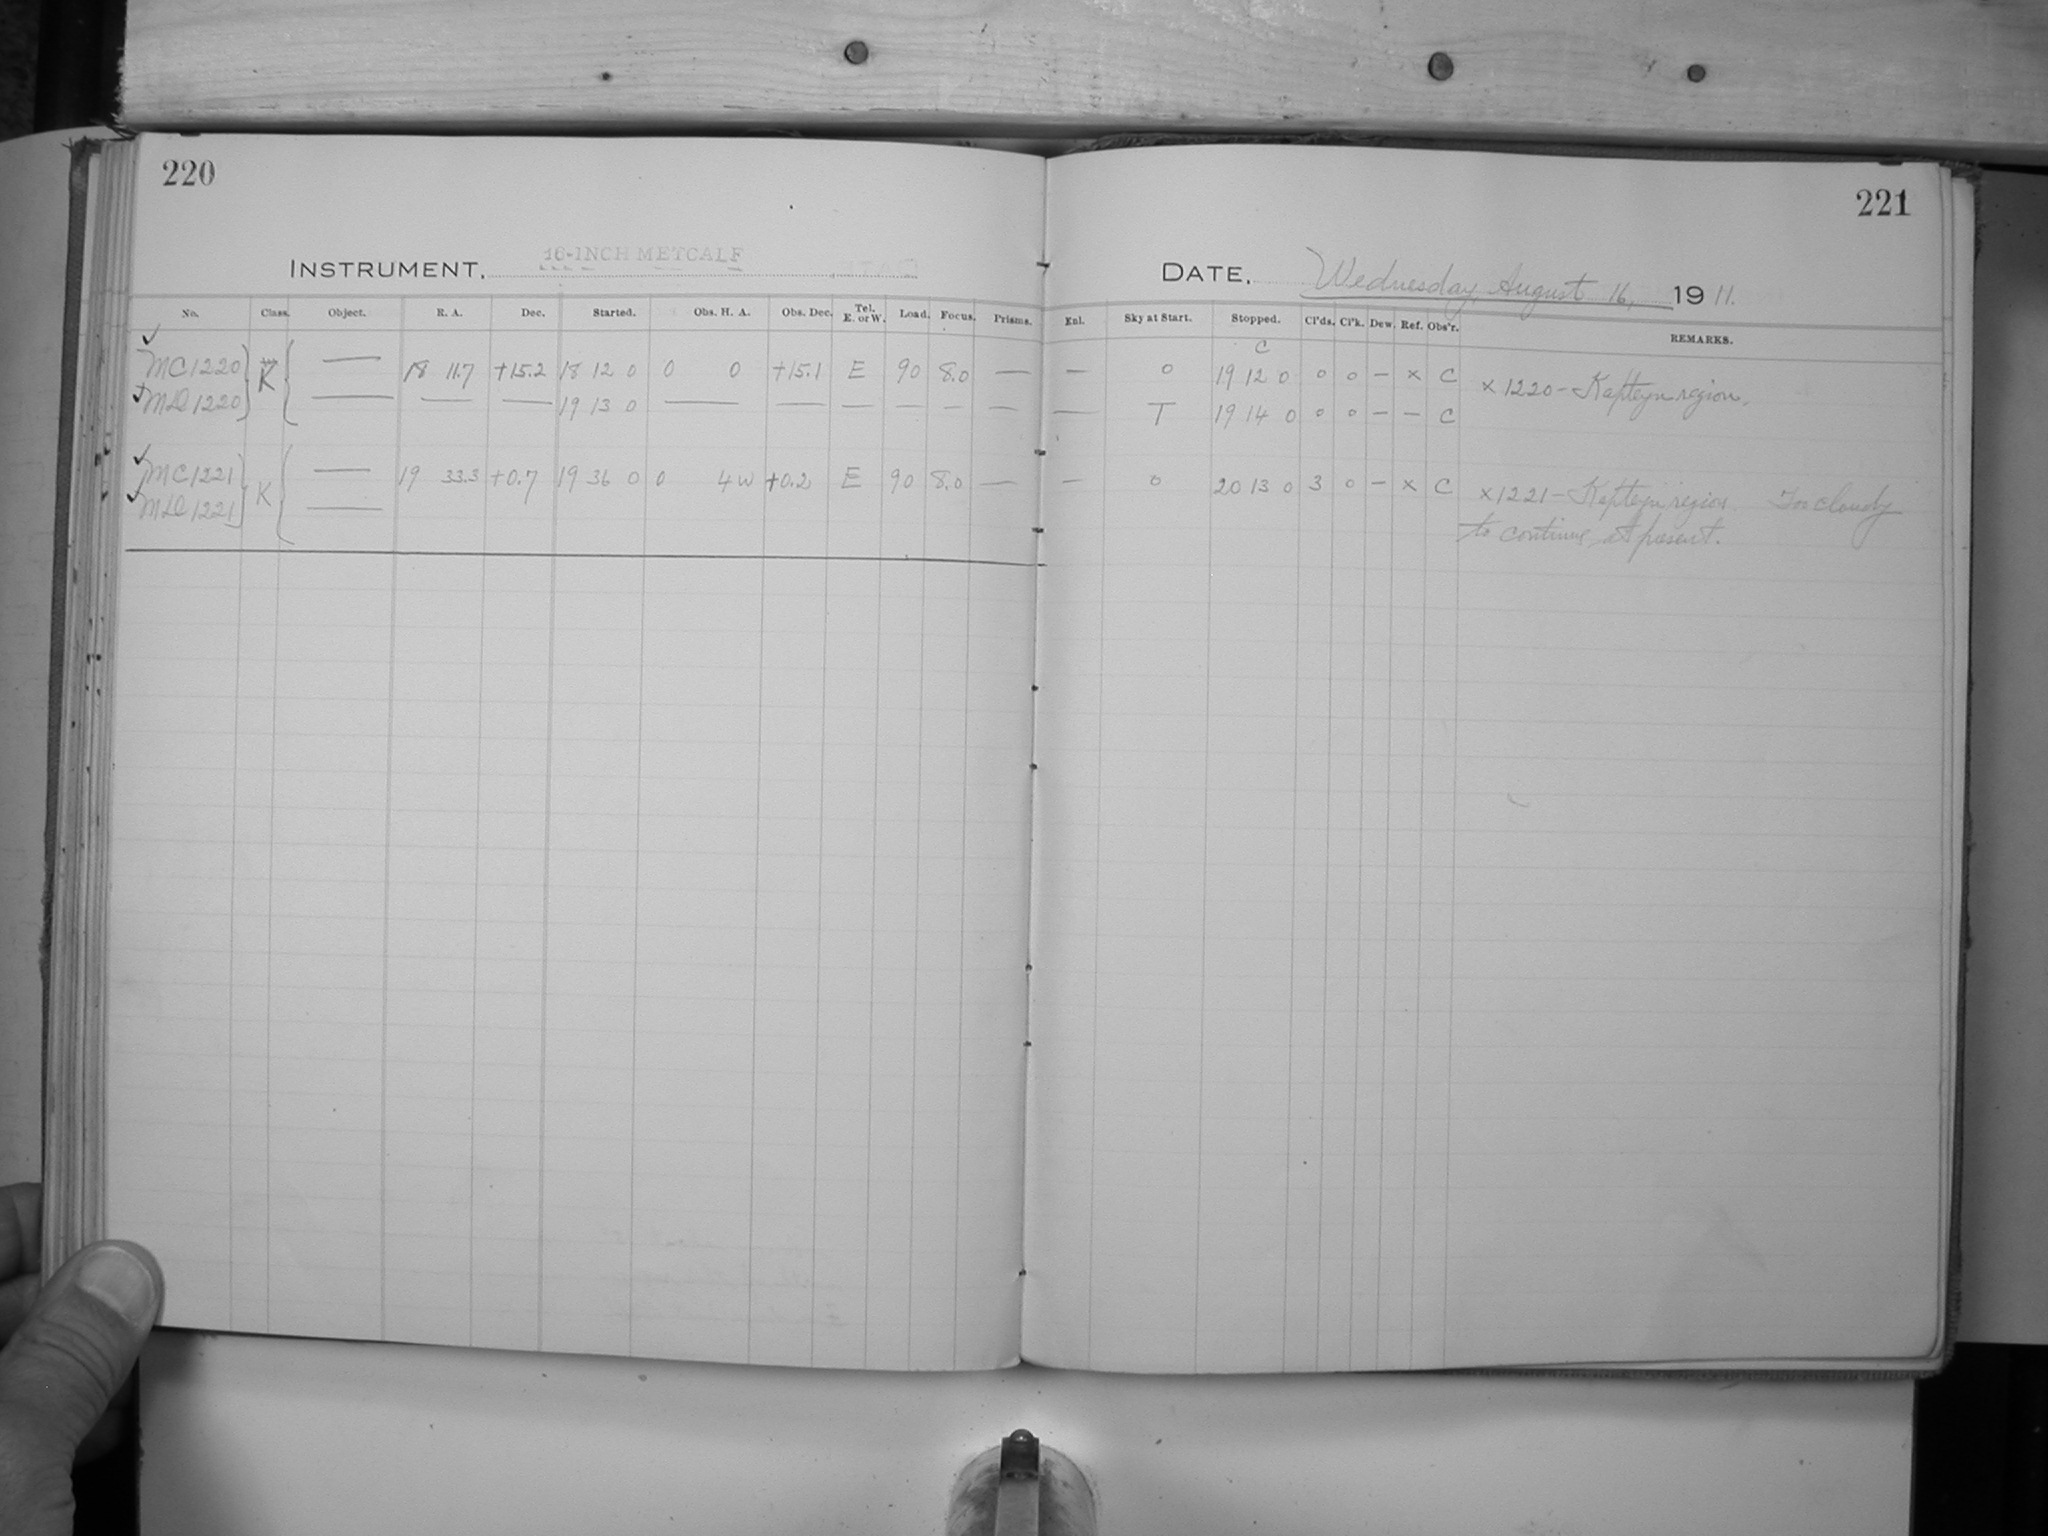 220
221
INSTRUMENT, 16-INCH METCALF
DATE, Wednesday, August 16, 1911.
No. Class. Object. R. A. Dec. Started. Obs. H. A. Obs. Dec. Tel. E. or W. Load. Focus. Prisms. Enl. Sky at Start. Stopped. Cl'ds. Cl'k. Dew. Ref. Obs'r. REMARKS.
C
MC1220 K — 18 11.7 +15.2 18 12 0 0 0 +15.1 E 90 8.0 — — 0 19 12 0 0 0 – x C x 1220 – Kapteyn region.
1220 — — — 19 13 0 — — — — — — — T 19 14 0 0 0 – – C
MC1221 K — 19 33.3 +0.7 19 36 0 0 4 W +0.2 E 90 8.0 — — 0 20 13 0 3 0 – x C x 1221 – Kapteyn region. Too cloudy
1221 — to continue at present.